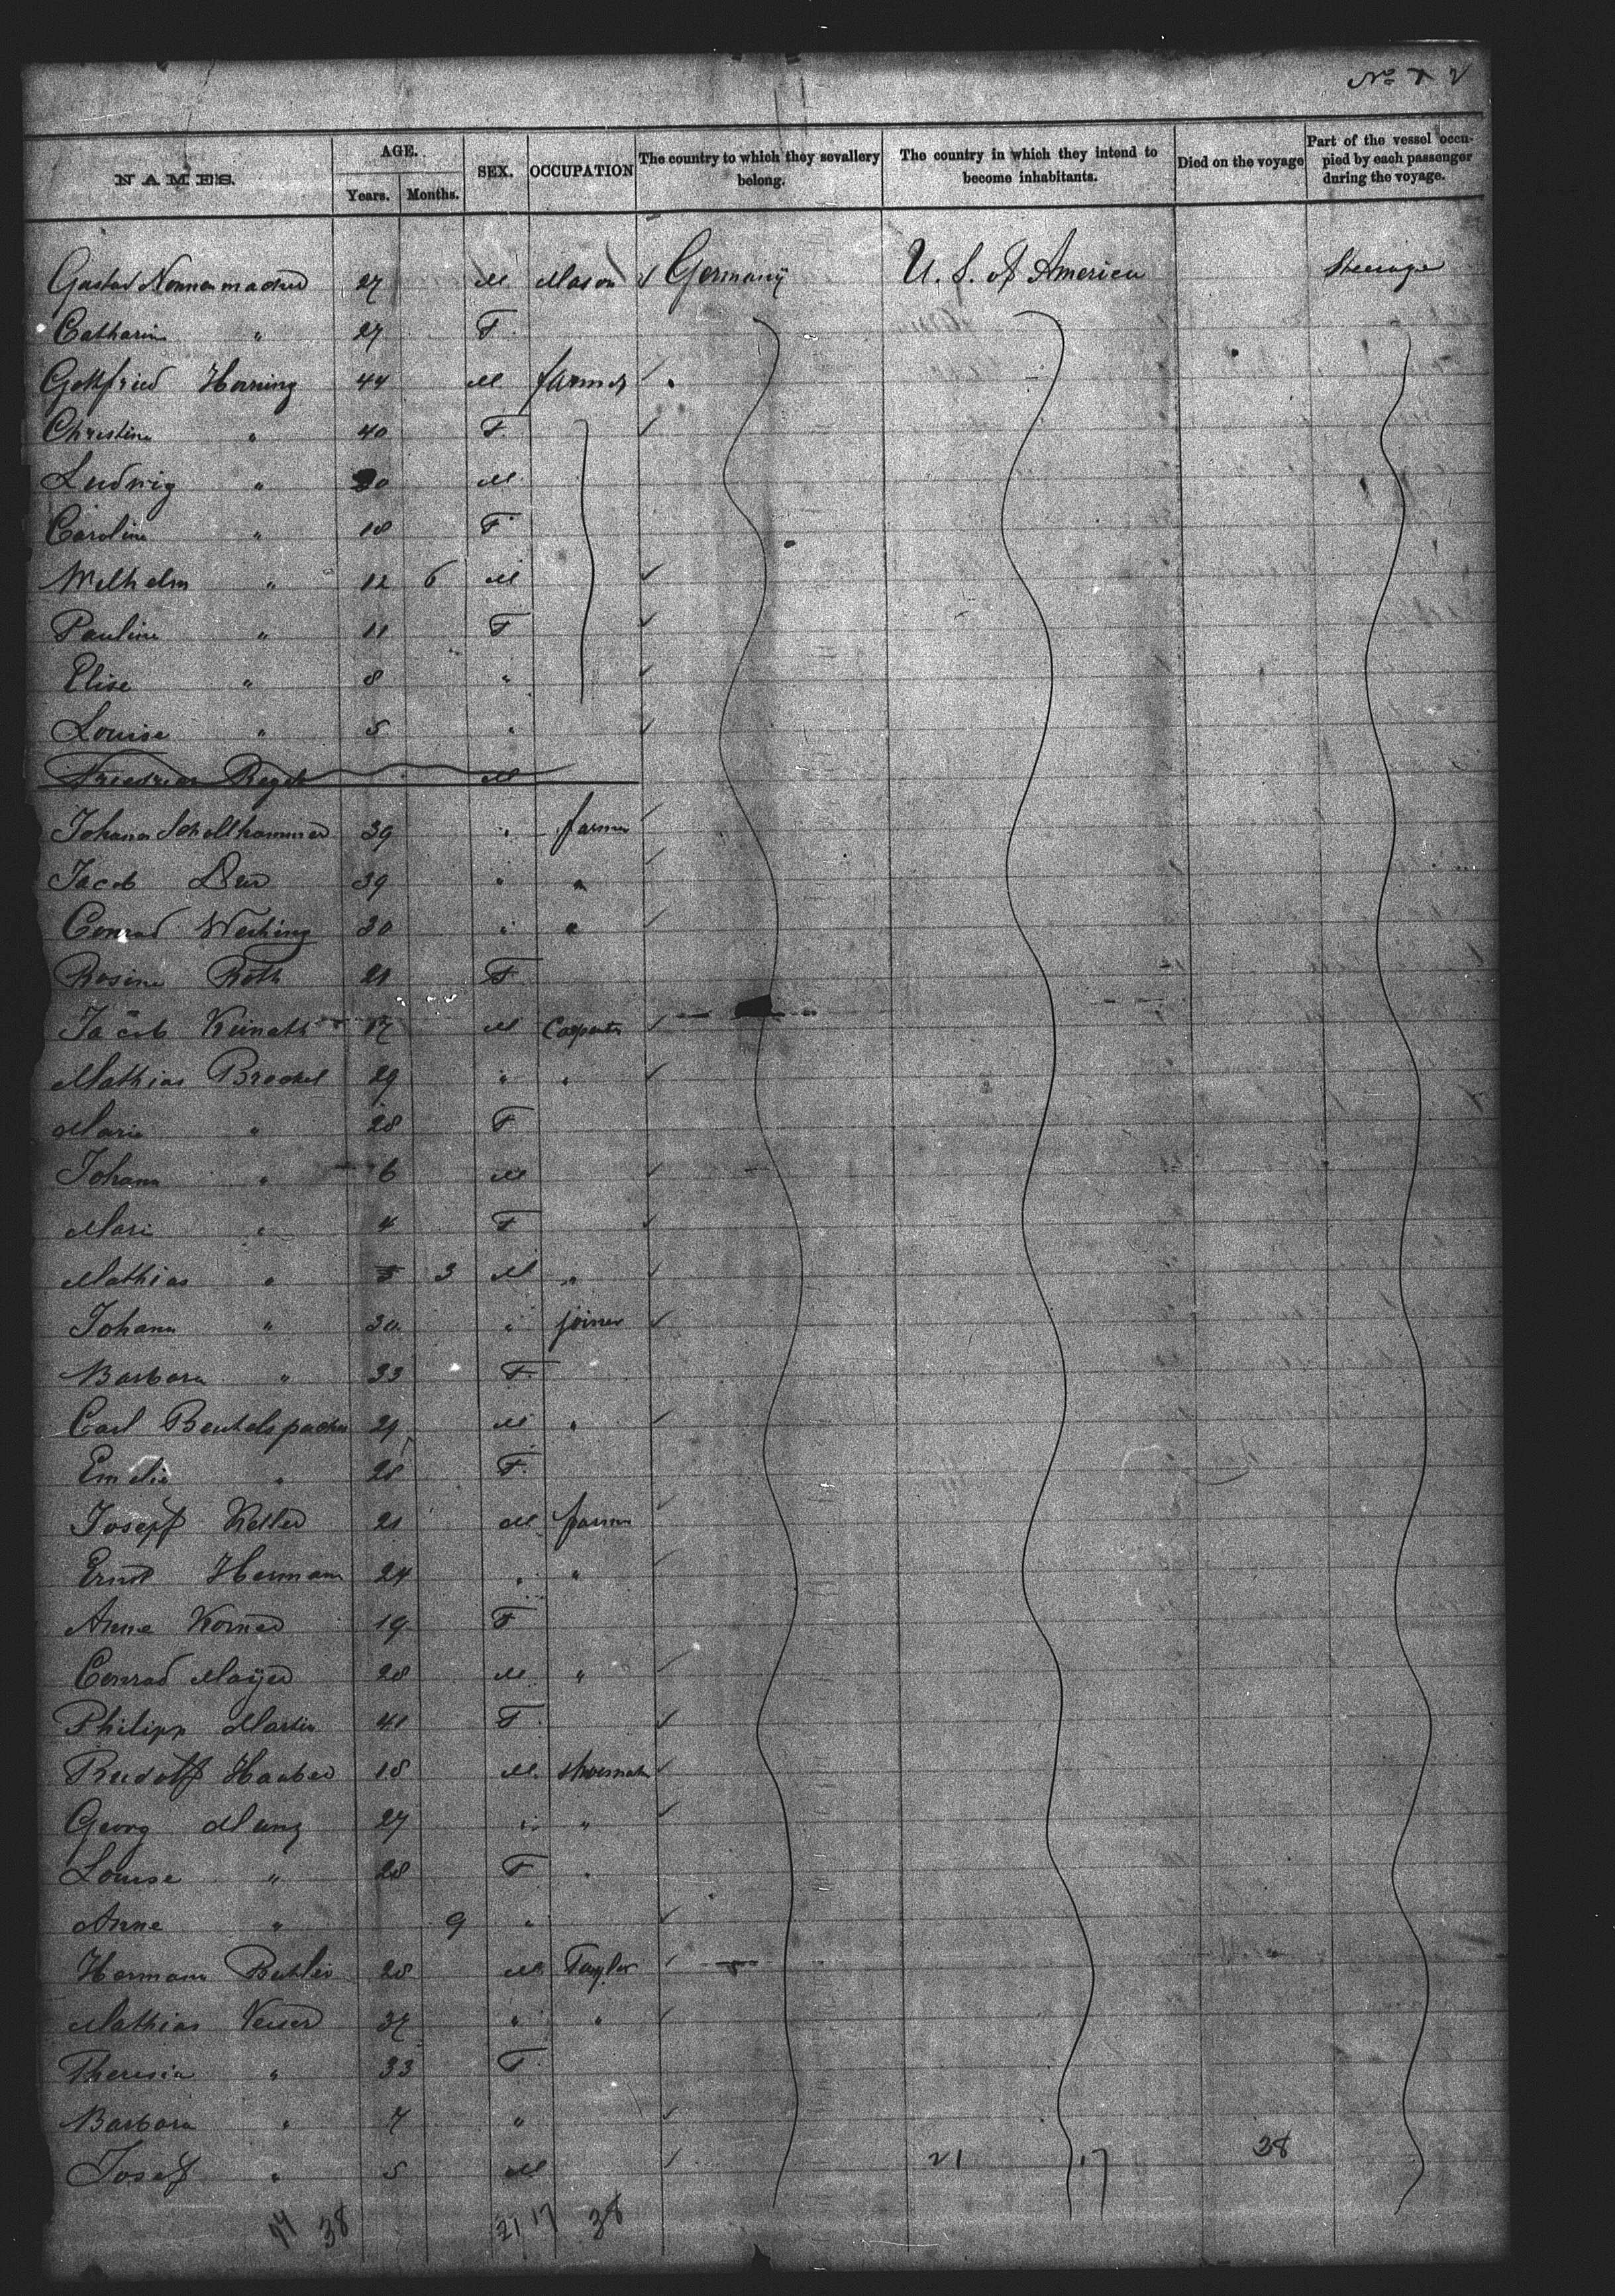 No 2
NAMES. AGE. Years. Months. SEX. OCCUPATION The country to which they sevallery belong. The country in which they intend to become inhabitants. Died on the voyage Part of the vessel occupied by each passenger during the voyage.
Gustav Nonnenmacher 27 M Mason Germany U. S. of America Steerage
Catharine " 27 F
Gottfried Horning 44 M farmer
Christine " 40 F
Ludwig " 20 M
Caroline " 18 F
Wilhelm " 12 6 M
Pauline " 11 F
Elise " 8 "
Louise " 5 "
Friedrich M
Johann Schollhammer 39 " farmer
Jacob 39 " "
Conrad Weihing 30 " "
Rosine Roth 21 F
Jacob Keinath 17 M Carpenter
Mathias Brechel 29 " "
Marie " 28 F
Johann " 6 M
Marie " 4 F
Mathias " 3 M "
Johann " 30 " joiner
Barbara " 33 F
Carl Beutelspacher 29 M "
Emelie " 28 F
Josepf Keller 21 M farmer
Ernst Hermann 24 " "
Anne Korner 19 F
Conrad Mayer 28 M "
Philipp Martin 41 F
Rudolf Hauber 18 M shoemaker
Georg Munz 27 " "
Louise " 28 F "
Anne " 9 "
Hermann Buhler 28 M Taylor
Mathias 37 " "
Theresia " 33 F
Barbara " 7 "
Josef " 5 M 21 17 38
38 21 17 38